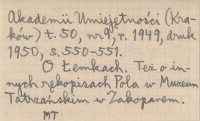 Akademii Umiejętności (Kra-
ków) t. 50, nr 9, r. 1949, druk
1950, s. 550-551.
O Łemkach. Też o in-
nych rękopisach Pola w Muzeum
Tatrzańskim w Zakopanem.
MT